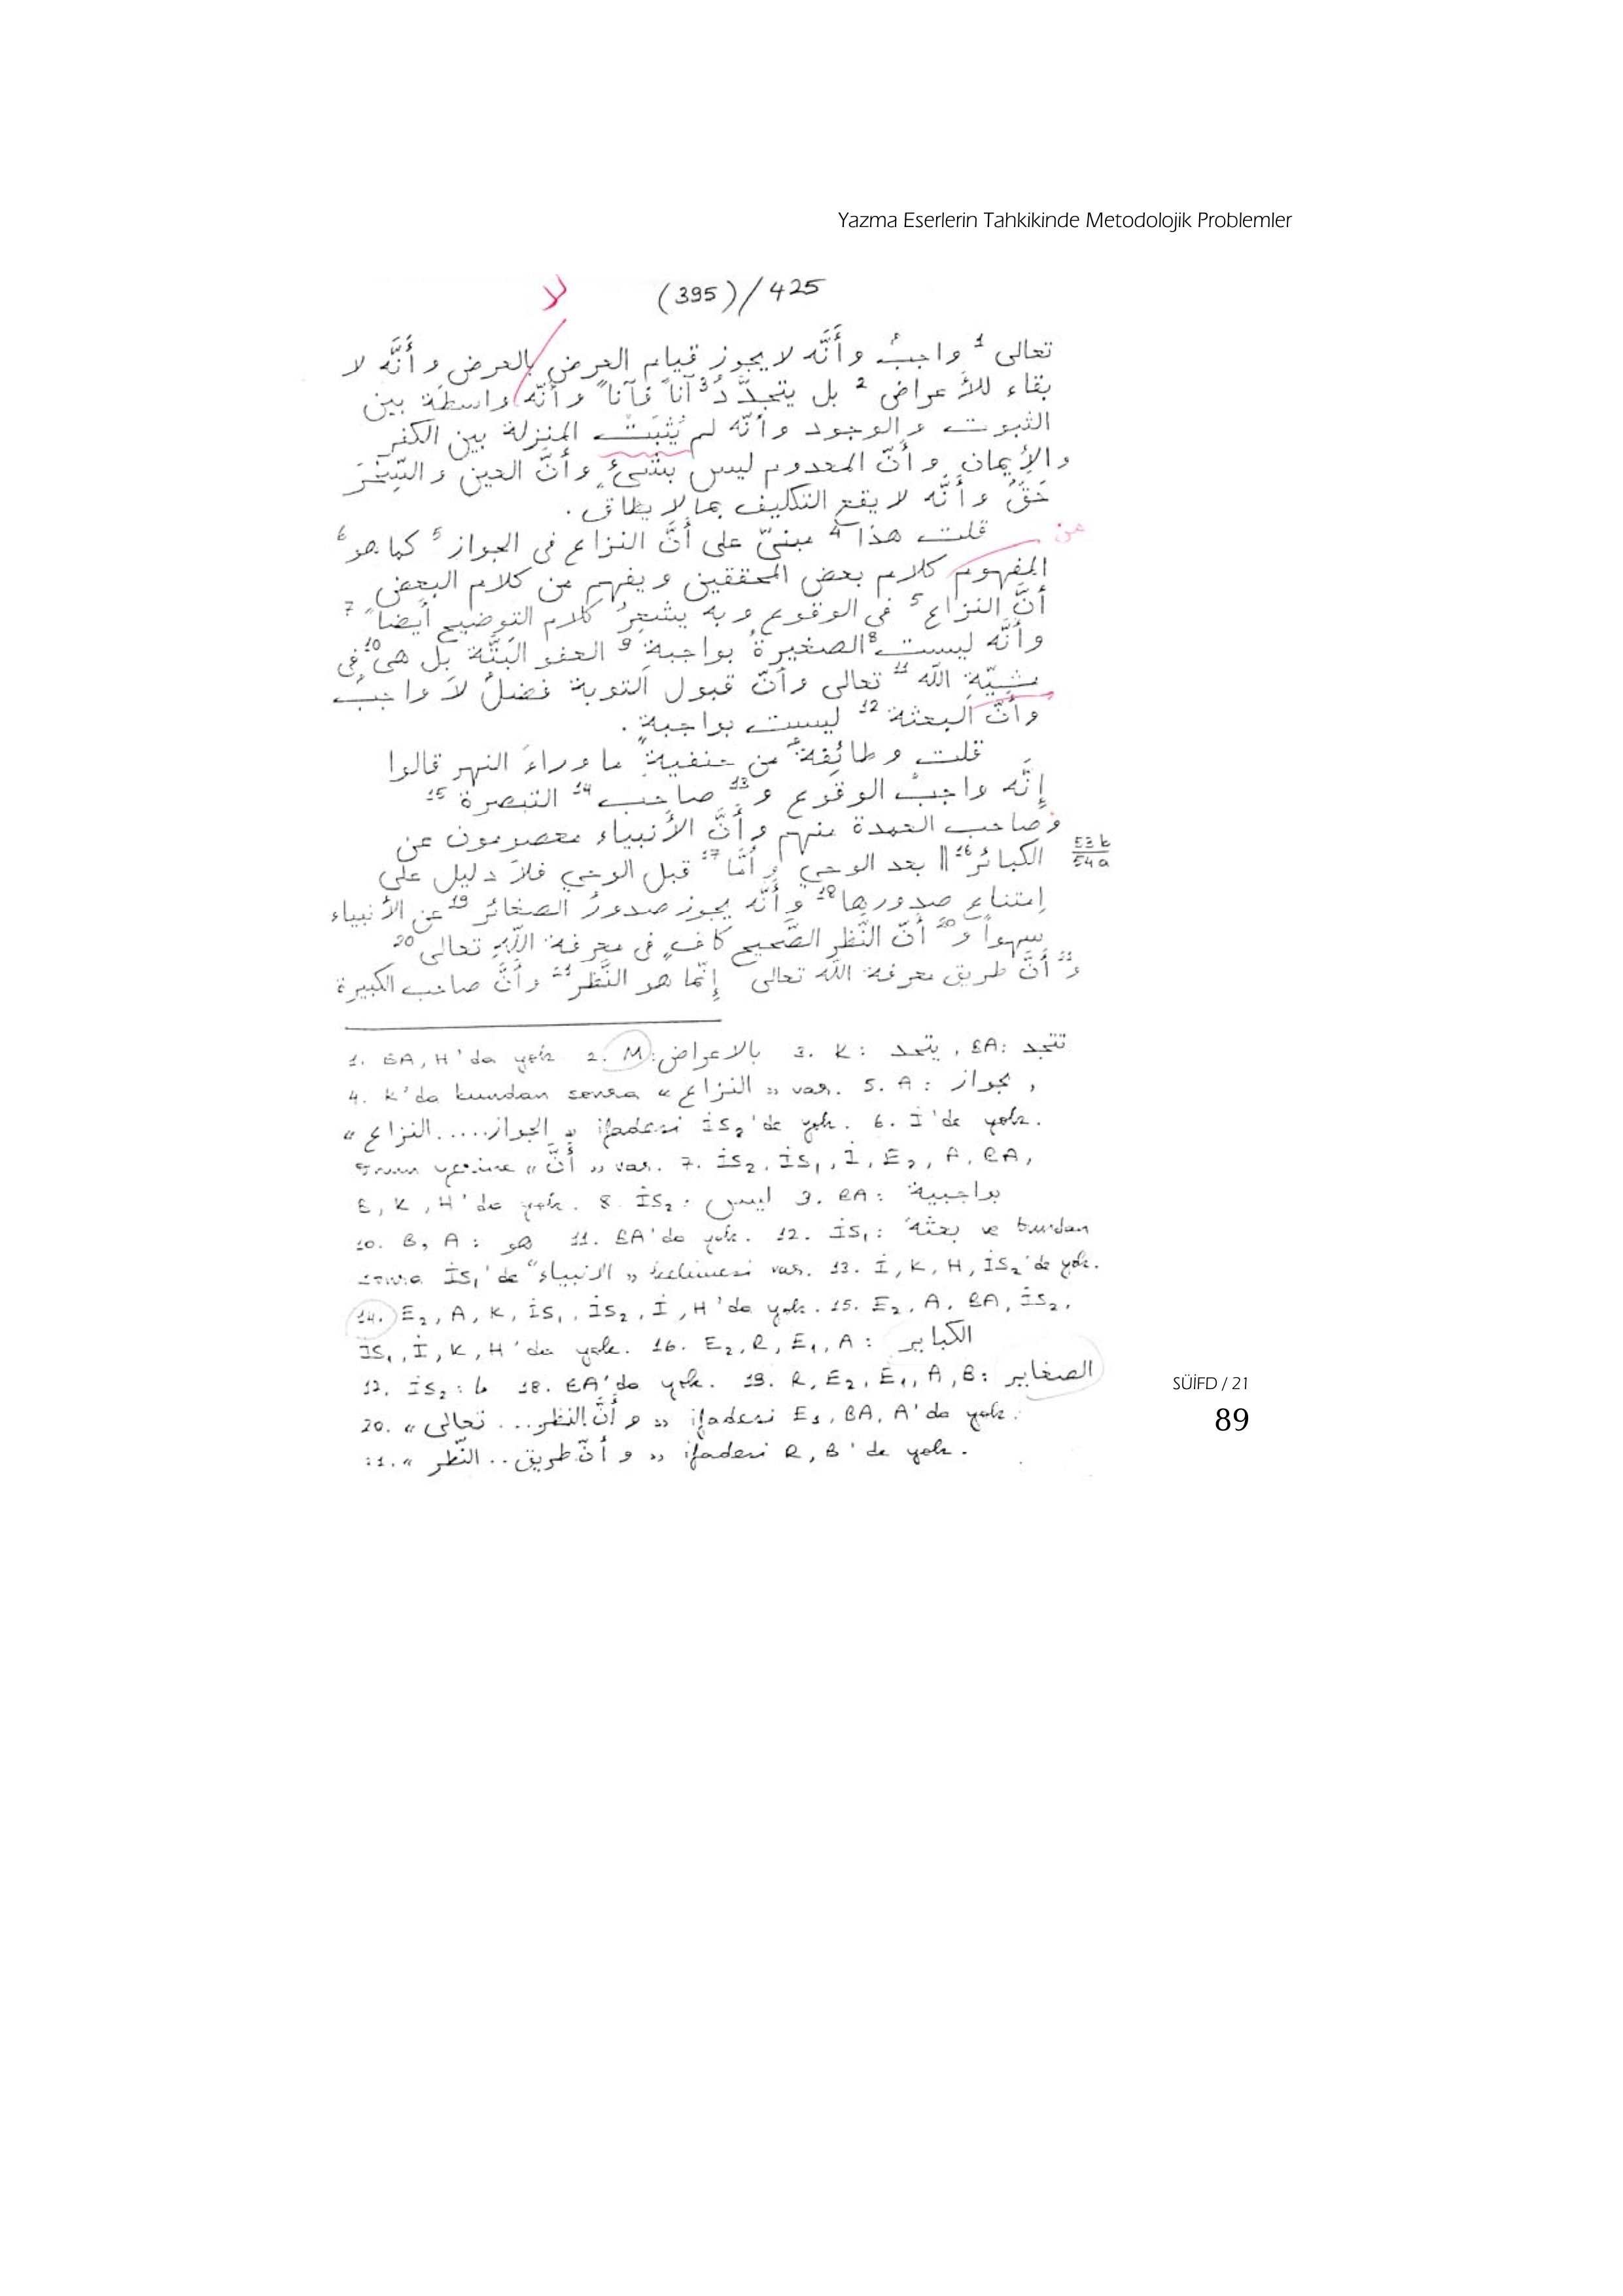 Yazma Eserlerin Tahkikinde Metodolojik Problemler
لا
(395)/425
تعالى 1 واجبٌ وأنَّه لا يجوز قيام العرض بالعرض وأنَّه لا
بقاء للأعراض 2 بل يتجدَّدُ 3 آناً فآناً وأنّه واسطة بين
الثبوت والوجود وأنّه لم يُثبَتْ المنزلة بين الكفر
والإيمان وأنّ المعدوم ليس بشئٍ وأنَّ العين والسِّحْرَ
حَقٌّ وأنَّه لا يقع التكليف بما لا يطاق .
قلت هذا 4 مبنىّ على أنَّ النزاع فى الجواز 5 كما هو 6
من
المفهوم كلام بعض المحققين ويفهم من كلام البعض
أنَّ النزاع 5 فى الوقوع وبه يشعِرُ كلام التوضيح أيضاً 7
وأنَّه ليست 8 الصغيرةُ بواجبةِ 9 العفو البَتَّة بل هى 10 فى
مشيّةِ اللّه 11 تعالى وأنّ قبول التوبة فضلٌ لا واجبٌ
وأنَّ البعثة 12 ليست بواجبةٍ .
قلت وطائفةٌ من حنفيةِ ما وراءَ النهر قالوا
إنَّه واجبُ الوقوع و 13 صاحب 14 التبصرة 15
وصاحب العمدة منهم وأنَّ الأنبياء معصومون عن
53b
54a
الكبائر 16 || بعد الوحي وأمَّا 17 قبل الوحي فلا دليل على
إمتناع صدورها 18 وأنَّه يجوز صدورُ الصغائر 19 عن الأنبياء
سهواً و 20 أنّ النَّظر الصَّحيح كافٍ فى معرفة اللّه تعالى 20
و 21 أنَّ طريق معرفة اللّه تعالى إنّما هو النَّظر 21 وأنَّ صاحب الكبيرة
1. BA, H'da yok 2. M: بالاعراض 3. K: يتحد , BA: تتجد
4. K'da bundan sonra « النزاع » var. 5. A : بجواز ,
« الجواز.....النزاع » ifadesi İS2'de yok. 6. İ'de yok.
bunun yerine « أنَّ » var. 7. İS2, İS1, İ, E2, A, BA,
B, K, H'de yok. 8. İS2: ليس 9. BA: بواجبية
10. B, A : هو 11. BA'da yok. 12. İS1: بعثة ve bundan
sonra İS1'de "الانبياء" kelimesi var. 13. İ, K, H, İS2'de yok.
14. E2, A, K, İS1, İS2, İ, H'da yok. 15. E2, A, BA, İS2,
İS1, İ, K, H'da yok. 16. E2, R, E1, A : الكباير
17. İS2: ما 18. BA'da yok. 19. R, E2, E1, A, B: الصغاير
20. « وأنَّ النظر... تعالى » ifadesi E1, BA, A'da yok.
21. « وأنّ طريق.. النّظر » ifadesi R, B'de yok.
SÜİFD / 21
89